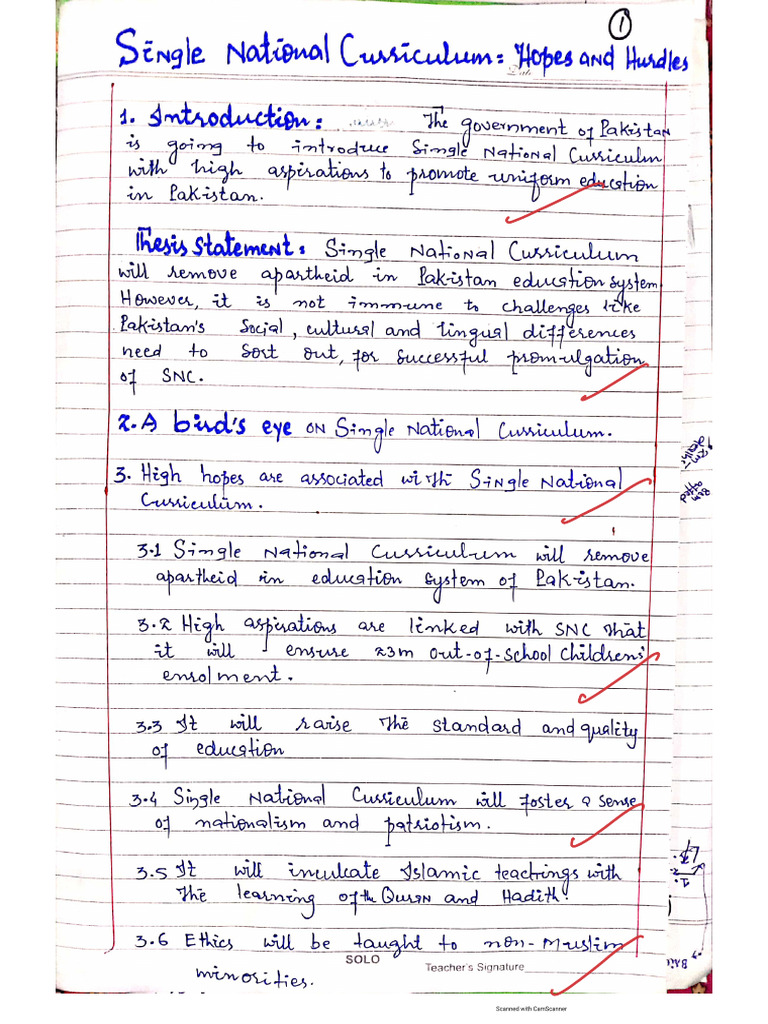 1
Single National Curriculum: Hopes and Hurdles
1. Introduction: The government of Pakistan
is going to introduce Single National Curriculum
with high aspirations to promote uniform education
in Pakistan.
Thesis Statement: Single National Curriculum
will remove apartheid in Pakistan education system
However, it is not immune to challenges like
Pakistan's Social, cultural and lingual differences
need to sort out, for successful promulgation
of SNC.
2. A bird's eye on Single National Curriculum.
3. High hopes are associated with Single National
Curriculum.
3.1 Single National Curriculum will remove
apartheid in education system of Pakistan.
3.2 High aspirations are linked with SNC that
it will ensure 23m out-of-school childrens'
enrolment.
3.3 It will raise the standard and quality
of education
3.4 Single National Curriculum will foster a sense
of nationalism and patriotism.
3.5 It will inculcate Islamic teachings with
the learning of the Quran and Hadith.
3.6 Ethics will be taught to non-Muslim
minorities.
SOLO
Teacher's Signature
Scanned with CamScanner